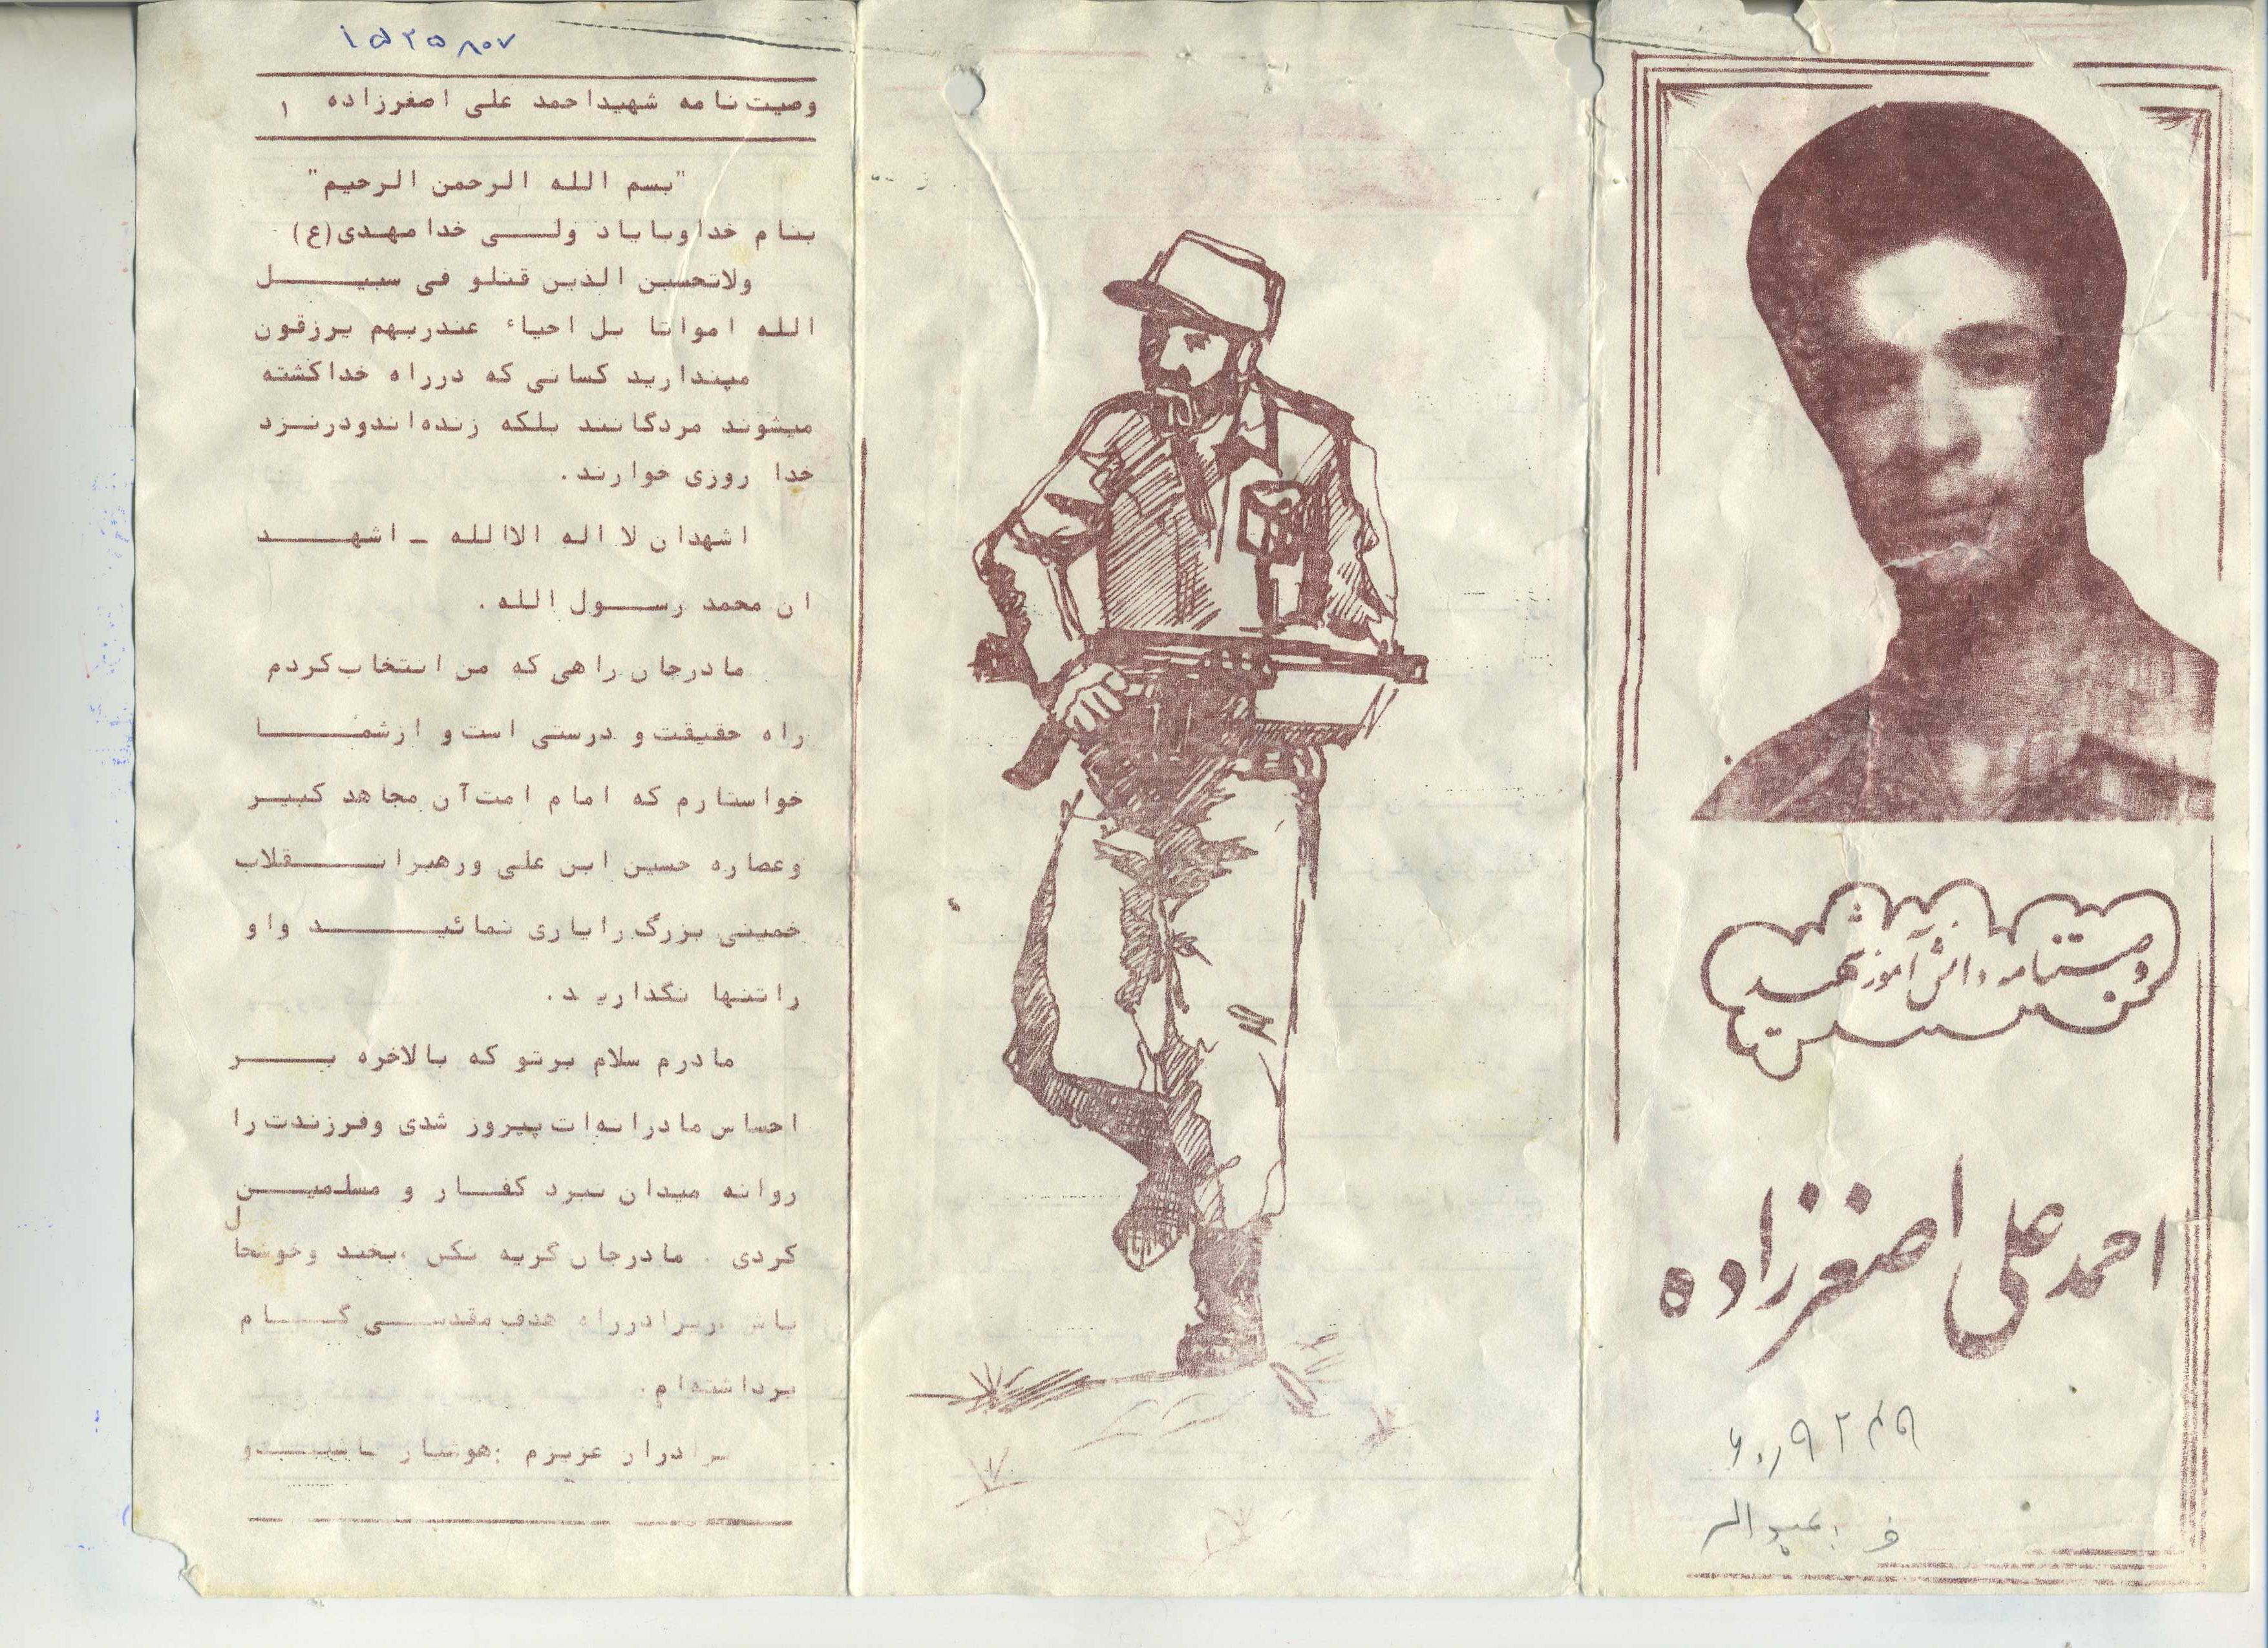 ۱۵۲۵۸۰۷
وصیت‌نامه شهیداحمد علی اصغرزاده ۱
"بسم الله الرحمن الرحیم"
بنام خداوبایاد ولی خدامهدی(ع)
ولاتحسبن الذین قتلو فی سبیل
الله امواتا بل احیاء عندربهم یرزقون
مپندارید کسانی که درراه خداکشته
میشوند مردگانند بلکه زنده‌اندودرنزد
خدا روزی خوارند.
اشهدان لا اله الاالله ـ اشهد
ان محمد رسول الله.
مادرجان راهی که من انتخاب‌کردم
راه حقیقت‌و درستی است‌و ازشما
خواستارم که امام امت‌آن مجاهد کبیر
وعصاره حسین ابن علی ورهبرانقلاب
خمینی بزرگ‌رایاری نمائید واو
راتنها نگذارید.
مادرم سلام برتو که بالاخره بر
احساس‌مادرانه‌ات‌پیروز شدی وفرزندت‌را
روانه میدان نبرد کفار و مسلمین
کردی . مادرجان‌گریه نکن ،بخند وخوشحال
باش ،زیرادرراه هدف‌مقدسی گام
برداشته‌ام.
برادران عزیزم :هوشیار باشیدو
وصیتنامه دانش‌آموز شهید
احمد علی اصغرزاده